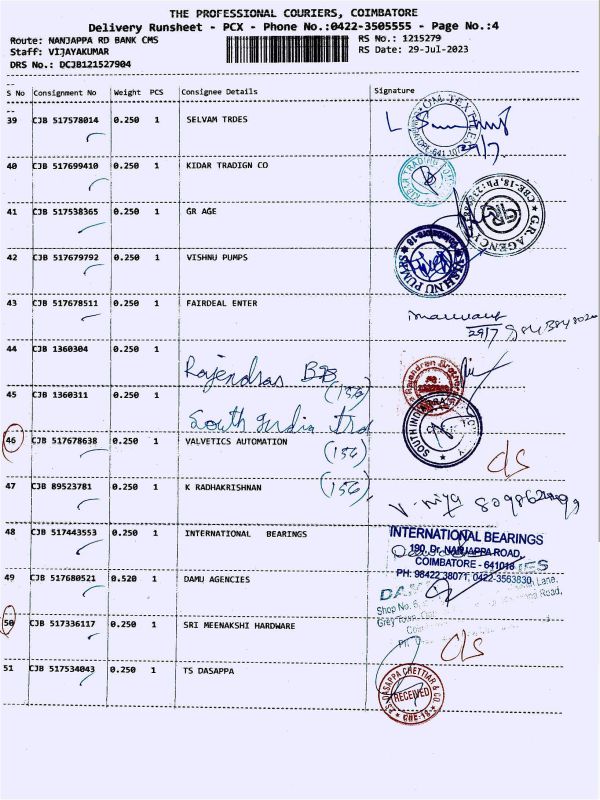 THE PROFESSIONAL COURIERS, COIMBATORE
Delivery Runsheet - PCX - Phone No.:0422-3505555 - Page No.:4
Route: NANJAPPA RD BANK CMS
RS No.: 1215279
Staff: VIJAYAKUMAR
RS Date: 29-Jul-2023
DRS No.: DCJB121527904
S No Consignment No Weight PCS Consignee Details Signature
39 CJB 517578014 0.250 1 SELVAM TRDES
OM TEXTILES
29/7
40 CJB 517699410 0.250 1 KIDAR TRADIGN CO
41 CJB 517538365 0.250 1 GR AGE
G.R. AGENCY
42 CJB 517679792 0.250 1 VISHNU PUMPS
VISHNU PUMPS
43 CJB 517678511 0.250 1 FAIRDEAL ENTER
29/7
44 CJB 1360304 0.250 1
Rajendras
(156)
Rajendran Brothers
45 CJB 1360311 0.250 1
South India Trd
SOUTH INDIA
46 CJB 517678638 0.250 1 VALVETICS AUTOMATION
(156)
cls
47 CJB 89523781 0.250 1 K RADHAKRISHNAN
(156),
48 CJB 517443553 0.250 1 INTERNATIONAL BEARINGS
INTERNATIONAL BEARINGS
190, Dr. NANJAPPA ROAD,
COIMBATORE - 641018
PH: 98422 38071, 0422-3563830
49 CJB 517680521 0.520 1 DAMU AGENCIES
Shop No.
Lane,
Road,
50 CJB 517336117 0.250 1 SRI MEENAKSHI HARDWARE
cls
51 CJB 517534043 0.250 1 TS DASAPPA
T.S. DASAPPA CHETTIAR & CO.
RECEIVED
CBE-18